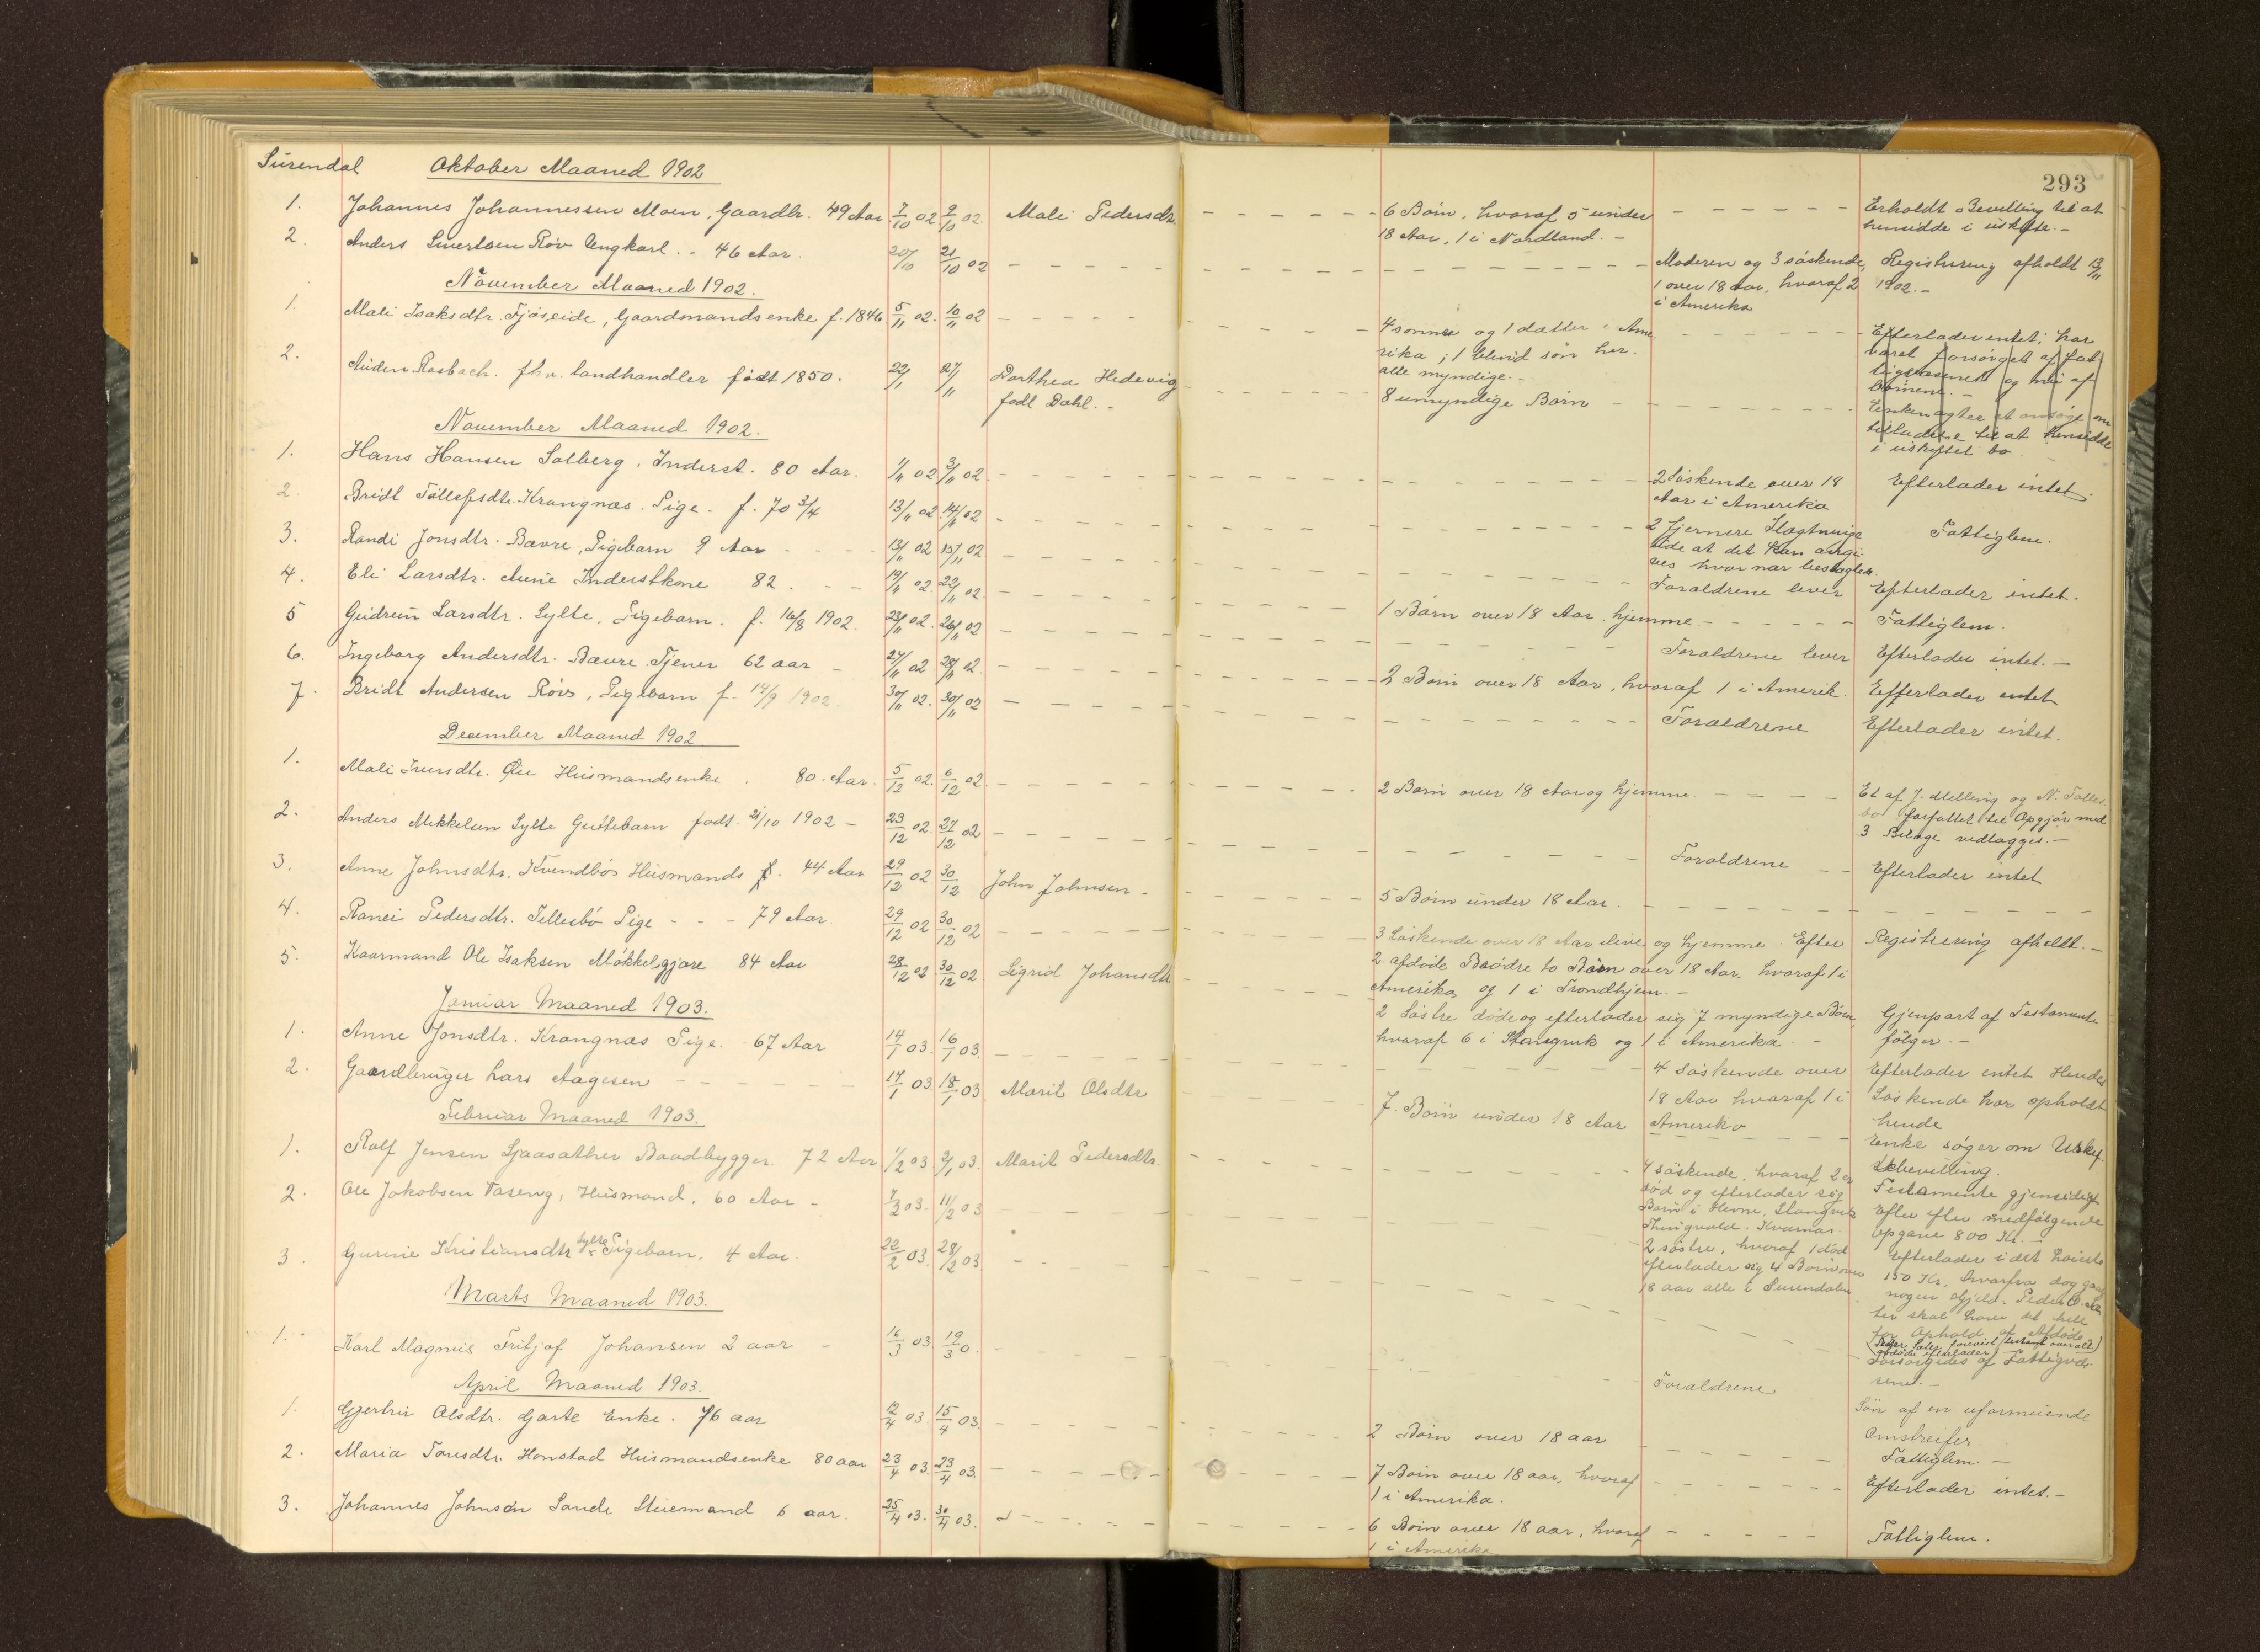 293
Surendal Oktober Maaned 1902
1. Johannes Johannessen Moen, Gaardbr. 49 Aar 7/10 02 9/10 02. Mali Pedersdtr. 6 Børn, hvoraf 5 under Erholdt Bevilling til at
18 Aar, 1 i Nordland. - hensidde i uskifte. -
2. Anders Sivertsen Røv Ungkarl. - 46 Aar. 20/10 21/10 02 Moderen og 3 søskende, Registrering afholdt 13/11
1 over 18 Aar, hvoraf 2 1902. -
i Amerika
November Maaned 1902.
1. Mali Isaksdtr. Fjøseide, Gaardmandsenke f. 1846 5/11 02. 10/11 02 4 sønner og 1 datter i Ame Efterlader intet; har
rika; 1 blind søn her. været forsørget af fat
alle myndige. - tigvæsenet og nu af
børnene. -
2. Auden Rasbach. fhv. landhandler født 1850. 22/11 27/11 Dorthea Hedevig 8 umyndige Børn Enken agter at ansøge om
født Dahl. - tilladelse til at hensidde
i uskiftet bo.
November Maaned 1902.
1. Hans Hansen Solberg, Inderst. 80 Aar. 1/11 02 3/11 02 2 Søskende over 18 Efterlader intet.
Aar i Amerika
2. Bridt Tøllefsdtr. Krangnæs. Pige. f. 70 3/4 13/11 02 14/11 02 2 fjernere Slægtninge Fattiglem.
uden at det kan angi
ves hvor nær beslægtede.
3. Randi Jonsdtr. Bævre, Pigebarn 9 Aar 13/11 02 15/11 02 Forældrene lever Efterlader intet.
4. Eli Larsdtr. Aune Inderstkone 82. 19/11 02. 22/11 02 1 Barn over 18 Aar. hjemme. - Fattiglem.
5 Gudrun Larsdtr. Sylte, Pigebarn. f. 16/8 1902. 23/11 02. 26/11 02 Forældrene lever Efterlader intet. -
6. Ingeborg Andersdtr. Bævre. Tjener 62 aar 24/11 02 28/11 02. 2 Børn over 18 Aar, hvoraf 1 i Amerik. Efterlader intet
7. Bridt Andersen Røv, Pigebarn f. 14/9 1902. 30/11 02. 30/11 02 Forældrene Efterlader intet.
December Maaned 1902
1. Mali Iversdtr. Øie Husmandsenke. 80. Aar. 5/12 02. 6/12 02. 2 Børn over 18 Aar og hjemme. Et af J. Melling og N. Telles
bø forfattet til Opgjør med
3 Bilage vedlægges. -
2. Anders Mikkelsen Sylte Guttebarn født. 21/10 1902 - 23/12 02. 27/12 02 Forældrene Efterlader intet
3. Anne Johnsdtr. Kvendbø Husmands k. 44 Aar 29/12 02. 30/12 John Johnsen - 5 Børn under 18 Aar.
4. Ranei Pedersdtr. Tellesbø Pige - - - 79 Aar. 29/12 02 30/12 02 3 Søskende over 18 Aar i live og hjemme. Efter Registrering afholdt. -
2 afdøde Brødre to Børn over 18 Aar, hvoraf 1 i
Amerika, og 1 i Trondhjem. -
5. Kaarmand Ole Isaksen Møkkelgjære 84 Aar 28/12 02 30/12 02 Sigrid Johansdtr 2 Søstre døde og efterlader sig 7 myndige Børn, Gjenpart af Testamente
hvoraf 6 i Stangvik og 1 i Amerika. - følger. -
Januar Maaned 1903.
1. Anne Jonsdtr. Krangnæs Pige. - 67 Aar 14/1 03. 16/1 03. 4 Søskende over Efterlader intet Hendes
18 Aar hvoraf 1 i Søskende har opholdt
Amerika hende
2. Gaardbruger Lars Aagesen 17/1 03 18/1 03 Marit Olsdtr 7. Børn under 18 Aar Enke søger om Uskif
tebevilling.
Februar Maaned 1903.
1. Rolf Jensen Sjaasæther Baadbygger. 72 Aar 1/2 03 03. Marit Pedersdtr. 4 søskende, hvoraf 2 er Testamente gjensidigt
død og efterlader sig Efter efter medfølgende
Børn i Hevne, Stangvik opgave 800 Kr. -
Thingvold. Kværnæs.
2. Ole Jakobsen Vaseng, Husmand. 60 Aar - 7/2 03. 11/2 03 2 søstre, hvoraf 1 død Efterlader i det høieste
efterlader sig 4 Børn over 150 Kr, hvorfra dog gaar
18 aar alle i Surendalen nogen Gjæld. Peder O.
ter skal have det hele
for Ophold af Afdøde
3. Gurine Kristiansdtr Sylte Pigebarn. 4 Aar. 22/2 03. 28/2 03 Forsørgedes af Fattigvæ
senet. -
Marts Maaned 1903.
1. Karl Magnus Fritjof Johansen 2 aar - 16/3 03 19/3 0. Forældrene Søn af en uformuende
Omstreifer
April Maaned 1903.
1. Gjertru Olsdtr. Garte Enke. 76 aar 12/4 03. 15/4 03. 2 Børn over 18 aar Fattiglem. -
2. Maria Tøresdtr. Honstad Husmandsenke 80 aar 23/4 03. 23/4 03. 7 Børn over 18 aar, hvoraf Efterlader intet. -
1 i Amerika.
3. Johannes Johnsøn Sande 6 aar. 25/4 03. 30/4 03. 6 Børn over 18 aar, hvoraf Fattiglem.
1 i Amerika